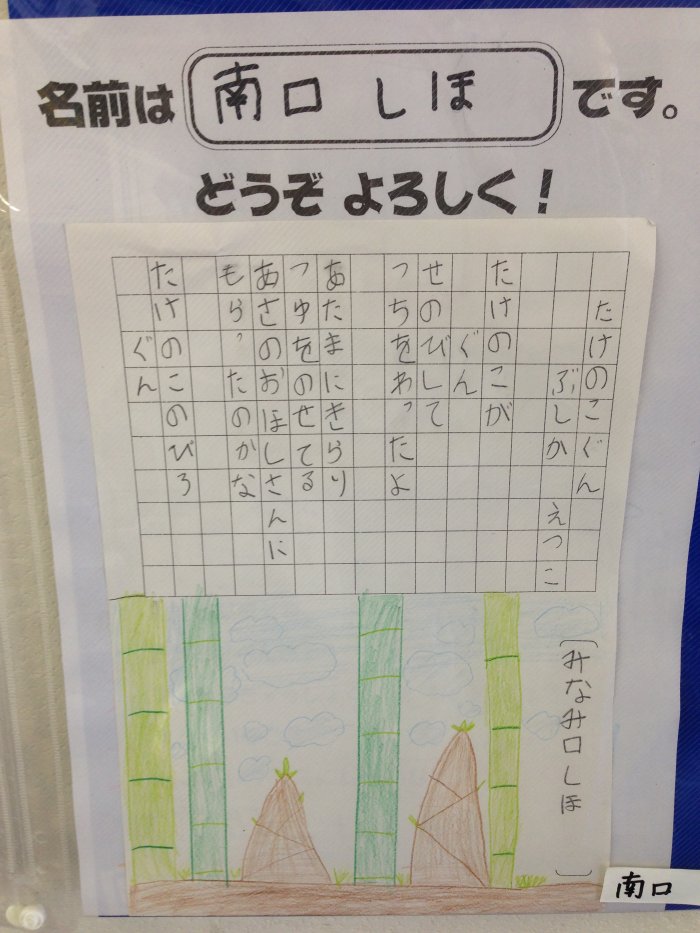 名前は 南口 しほ です。
どうぞ よろしく！
たけのこぐん
ぶしか えつこ
たけのこが
ぐん
せのびして
つちをわったよ
あたまにきらり
つゆをのせてる
あさのおほしさんに
もらったのかな
たけのこのぴろ
ぐん
(みなみ口しほ)
南口